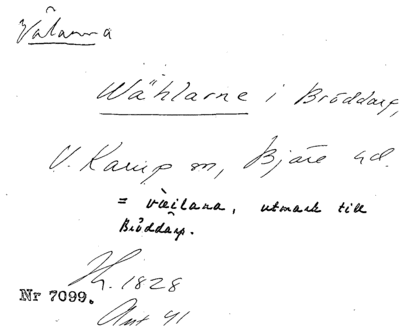 Vålarna
Wåhlarne i Bröddarp,
V. Karup sn, Bjäre hd.
= vèilana, utmark till
Bröddarp.
1828
Nr 7099.
Ant 41